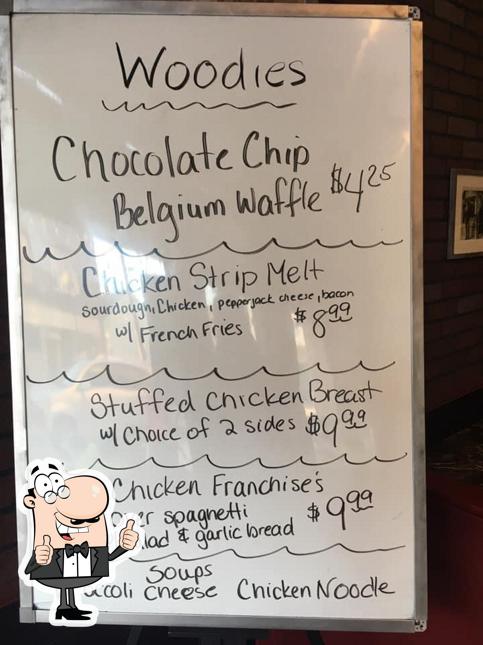 Woodies
Chocolate Chip
Belgium Waffle $4.25
Chicken Strip Melt
Sourdough, Chicken, pepperjack cheese, bacon
w/ French Fries $8.99
Stuffed Chicken Breast
w/ Choice of 2 sides $9.99
Chicken Franchise's
spaghetti $9.99
& garlic bread
Soups
cheese Chicken Noodle